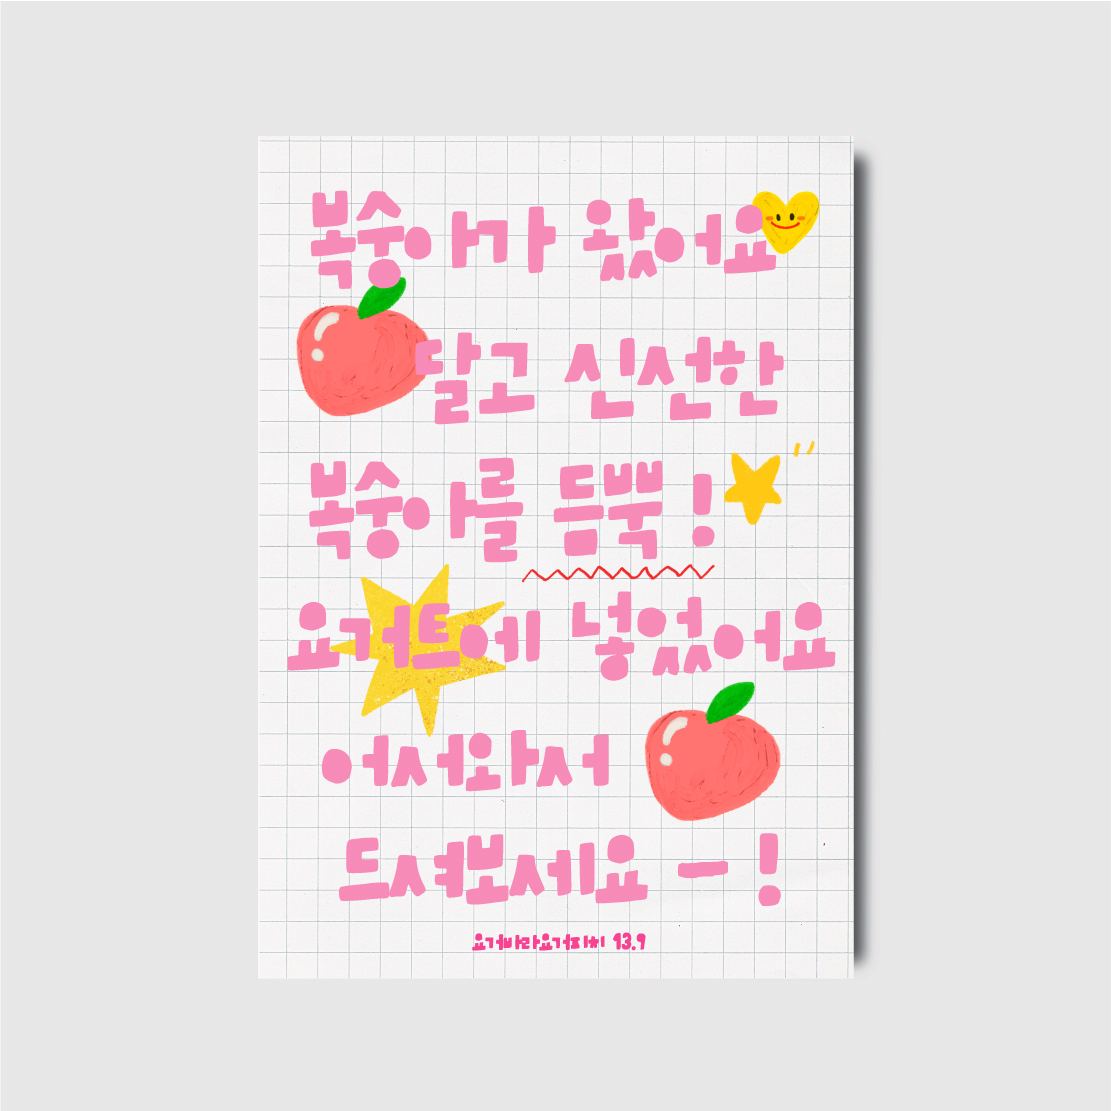 복숭아가 왔어요
달고 신선한
복숭아를 듬뿍!
요거트에 넣었어요
어서와서
드셔보세요 -!
요거바라요거피치 93.9